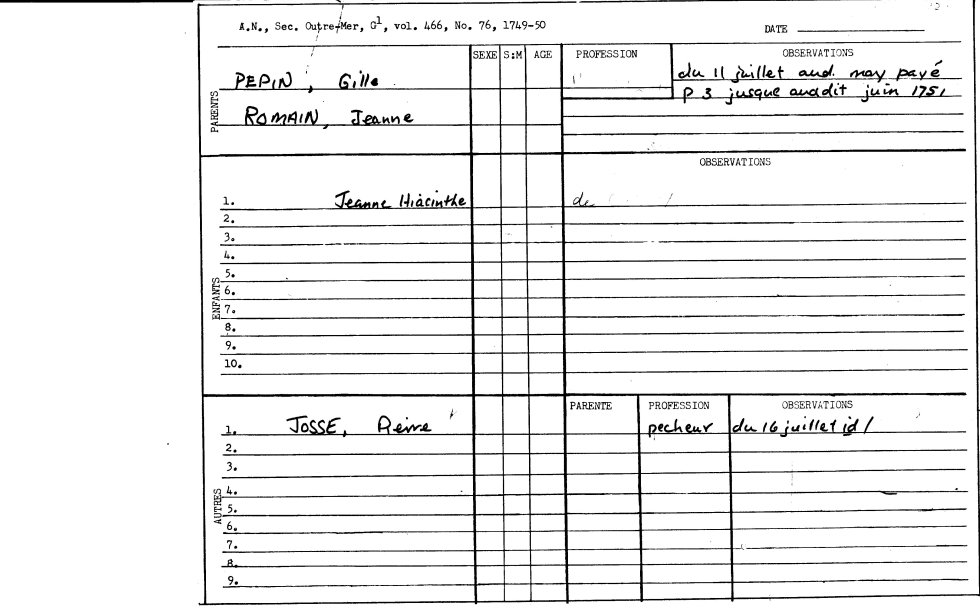 A.N., Sec. Outre-Mer, G1, vol. 466, No. 76, 1749-50
DATE
SEXE S:M AGE PROFESSION OBSERVATIONS
PARENTS
PEPIN, Gille
du 11 juillet aud. may payé
P 3 jusque audit juin 1751
ROMAIN, Jeanne
OBSERVATIONS
ENFANTS
1. Jeanne Hiacinthe de
2.
3.
4.
5.
6.
7.
8.
9.
10.
PARENTE PROFESSION OBSERVATIONS
AUTRES
1. JOSSE, Pierre pecheur du 16 juillet id /
2.
3.
4.
5.
6.
7.
8.
9.